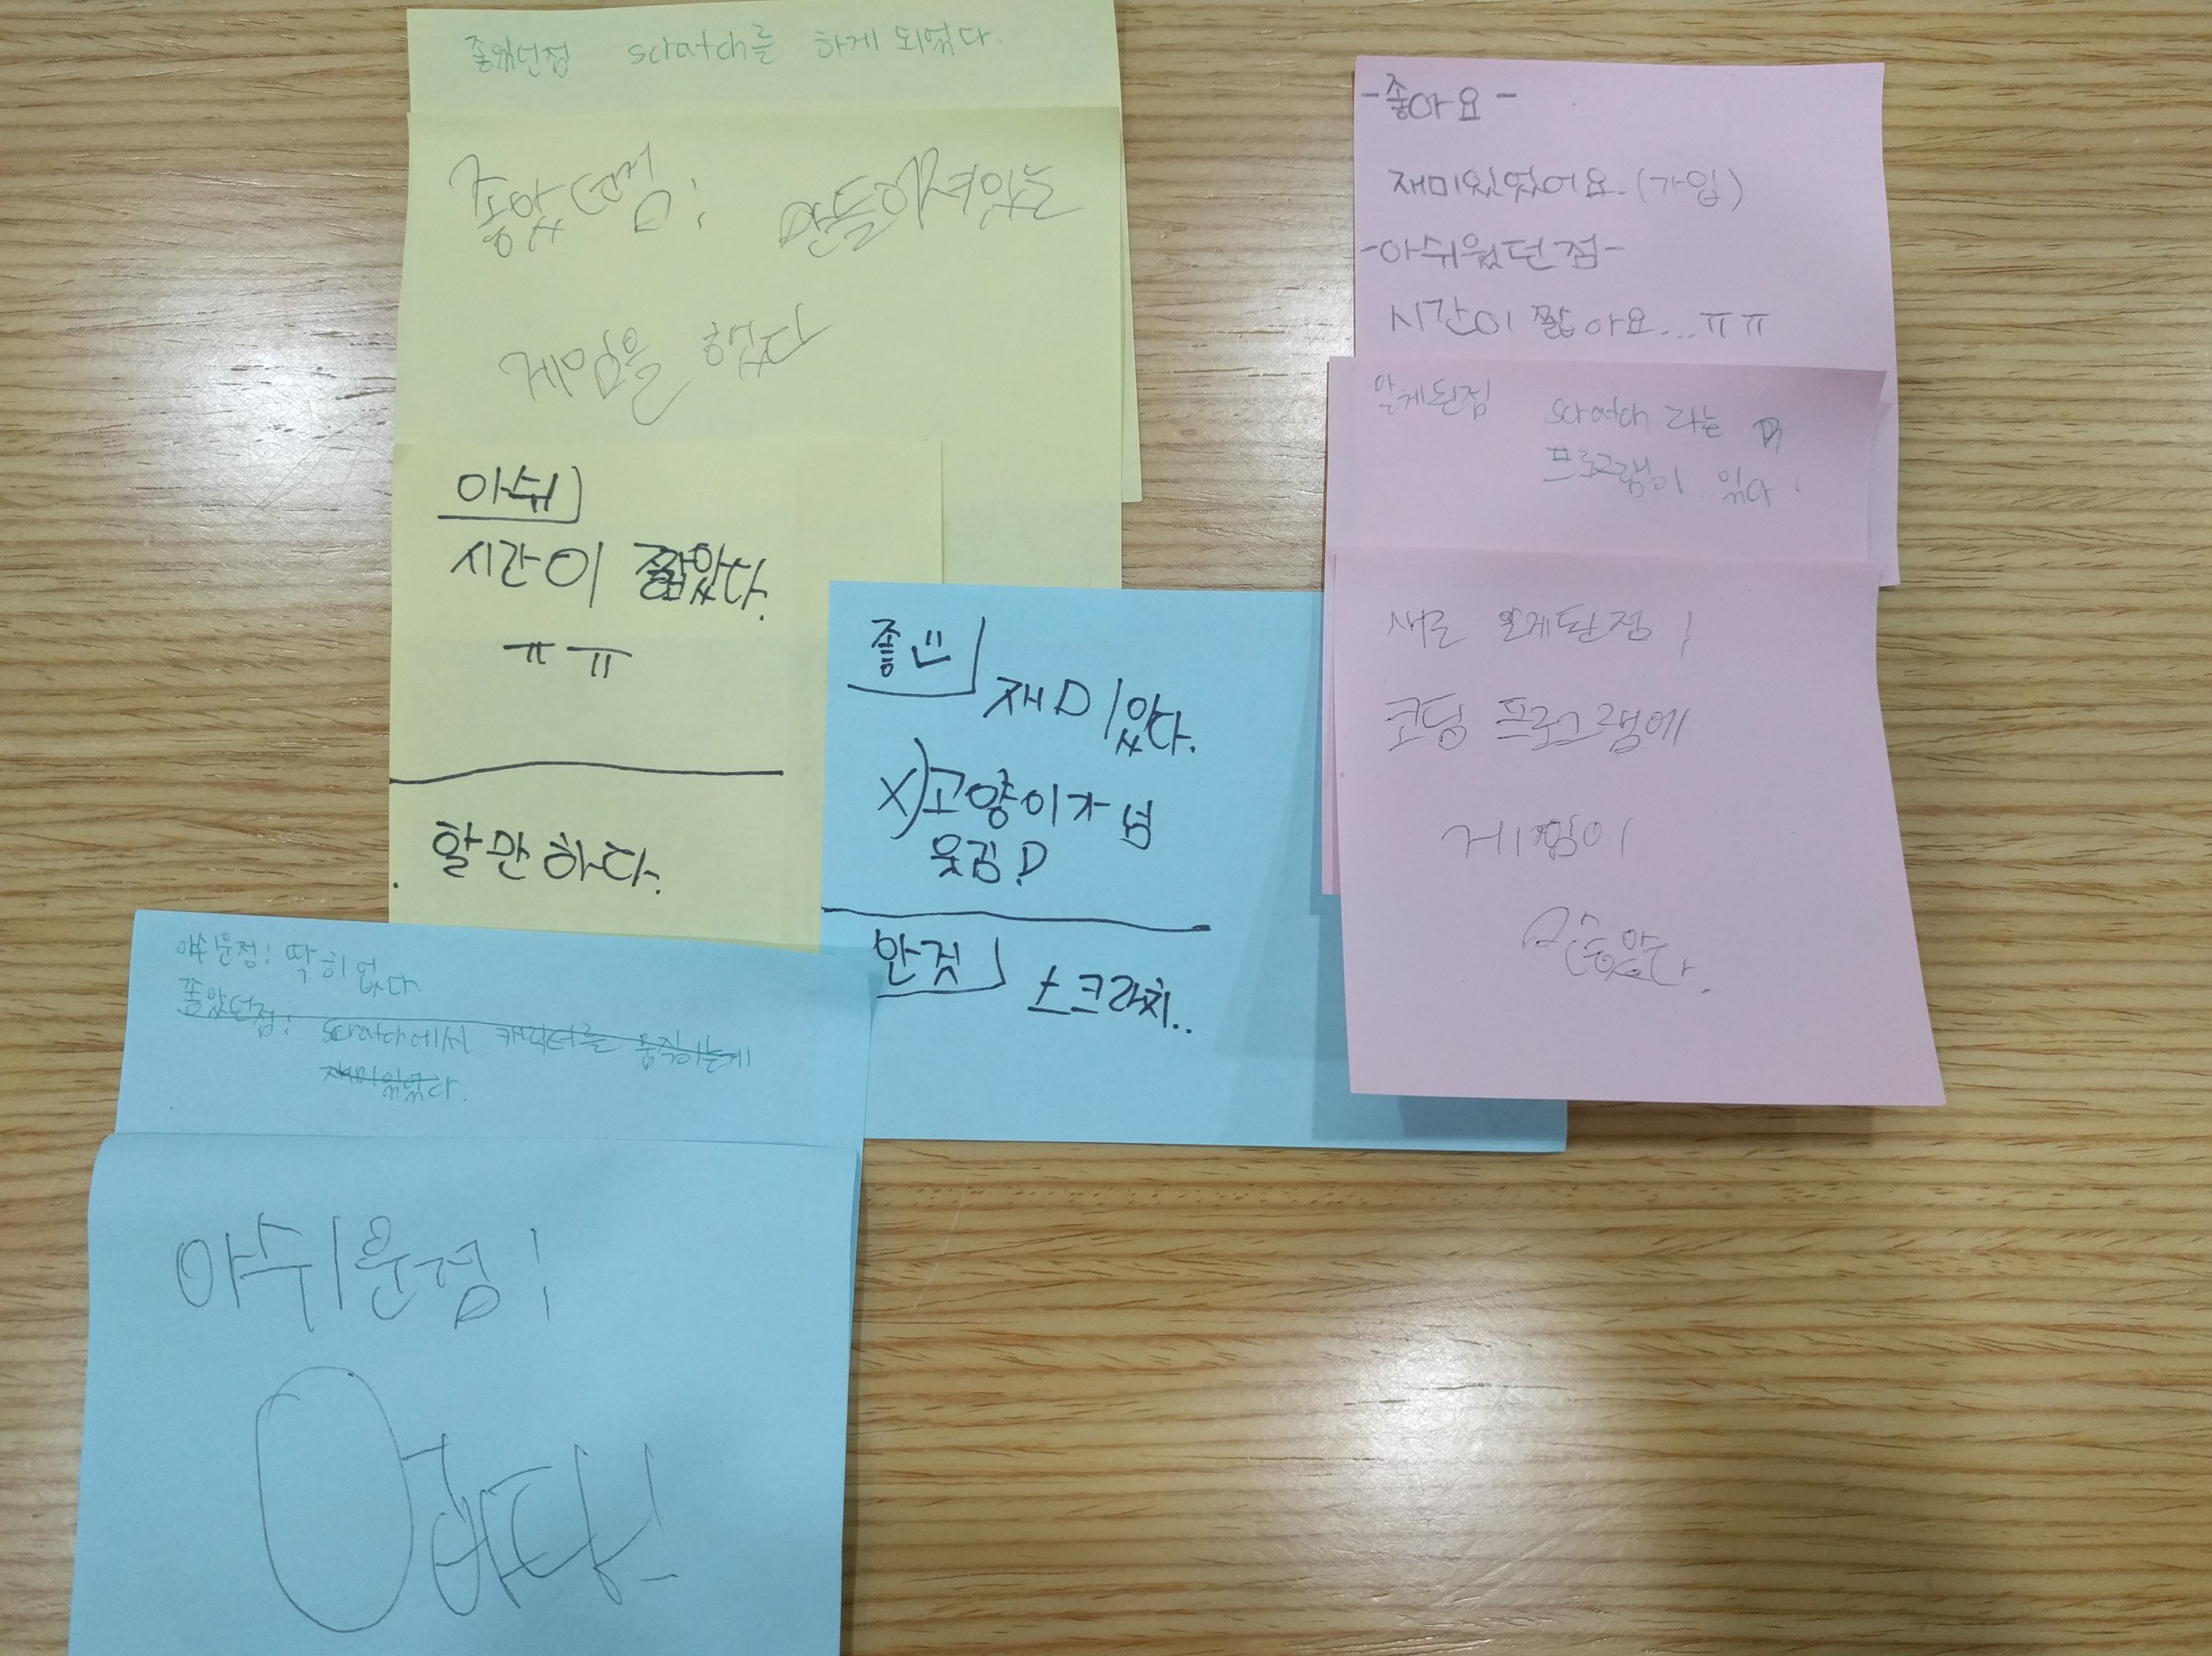 좋았던점 scratch를 하게 되었다.
좋았던점: 만들어져있는
게임을 했다
아쉬
시간이 짧았다.
ㅠㅠ
할만하다.
좋
재미있다.
X)고양이가 넘
웃김
안것
스크라치..
-좋아요-
재미있었어요.(가입)
-아쉬웠던점-
시간이 짧아요...ㅠㅠ
알게된점 scratch 라는
프로그램이 있다.
새로 알게된점:
코딩 프로그램에
게임이
아쉬운점: 딱히 없다.
좋았던점: scratch에서 캐릭터를 움직이는게
재미있었다.
아쉬운점:
없다!